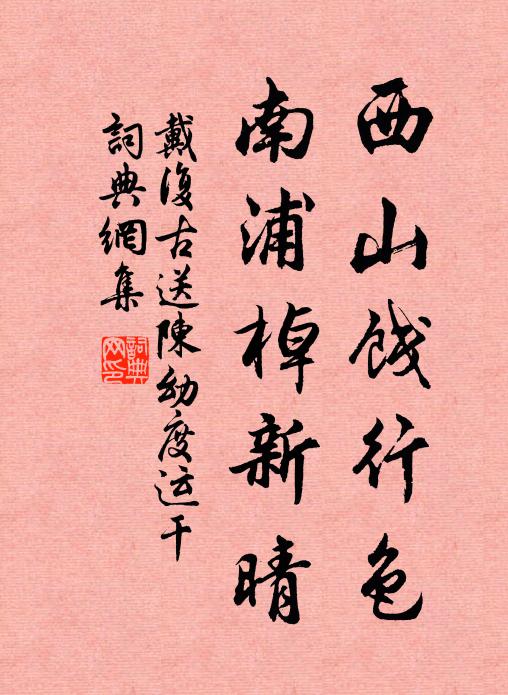 西山餞行色
南浦棹新晴
戴復古送陳幼度运干
詞典網集
詞典
网印